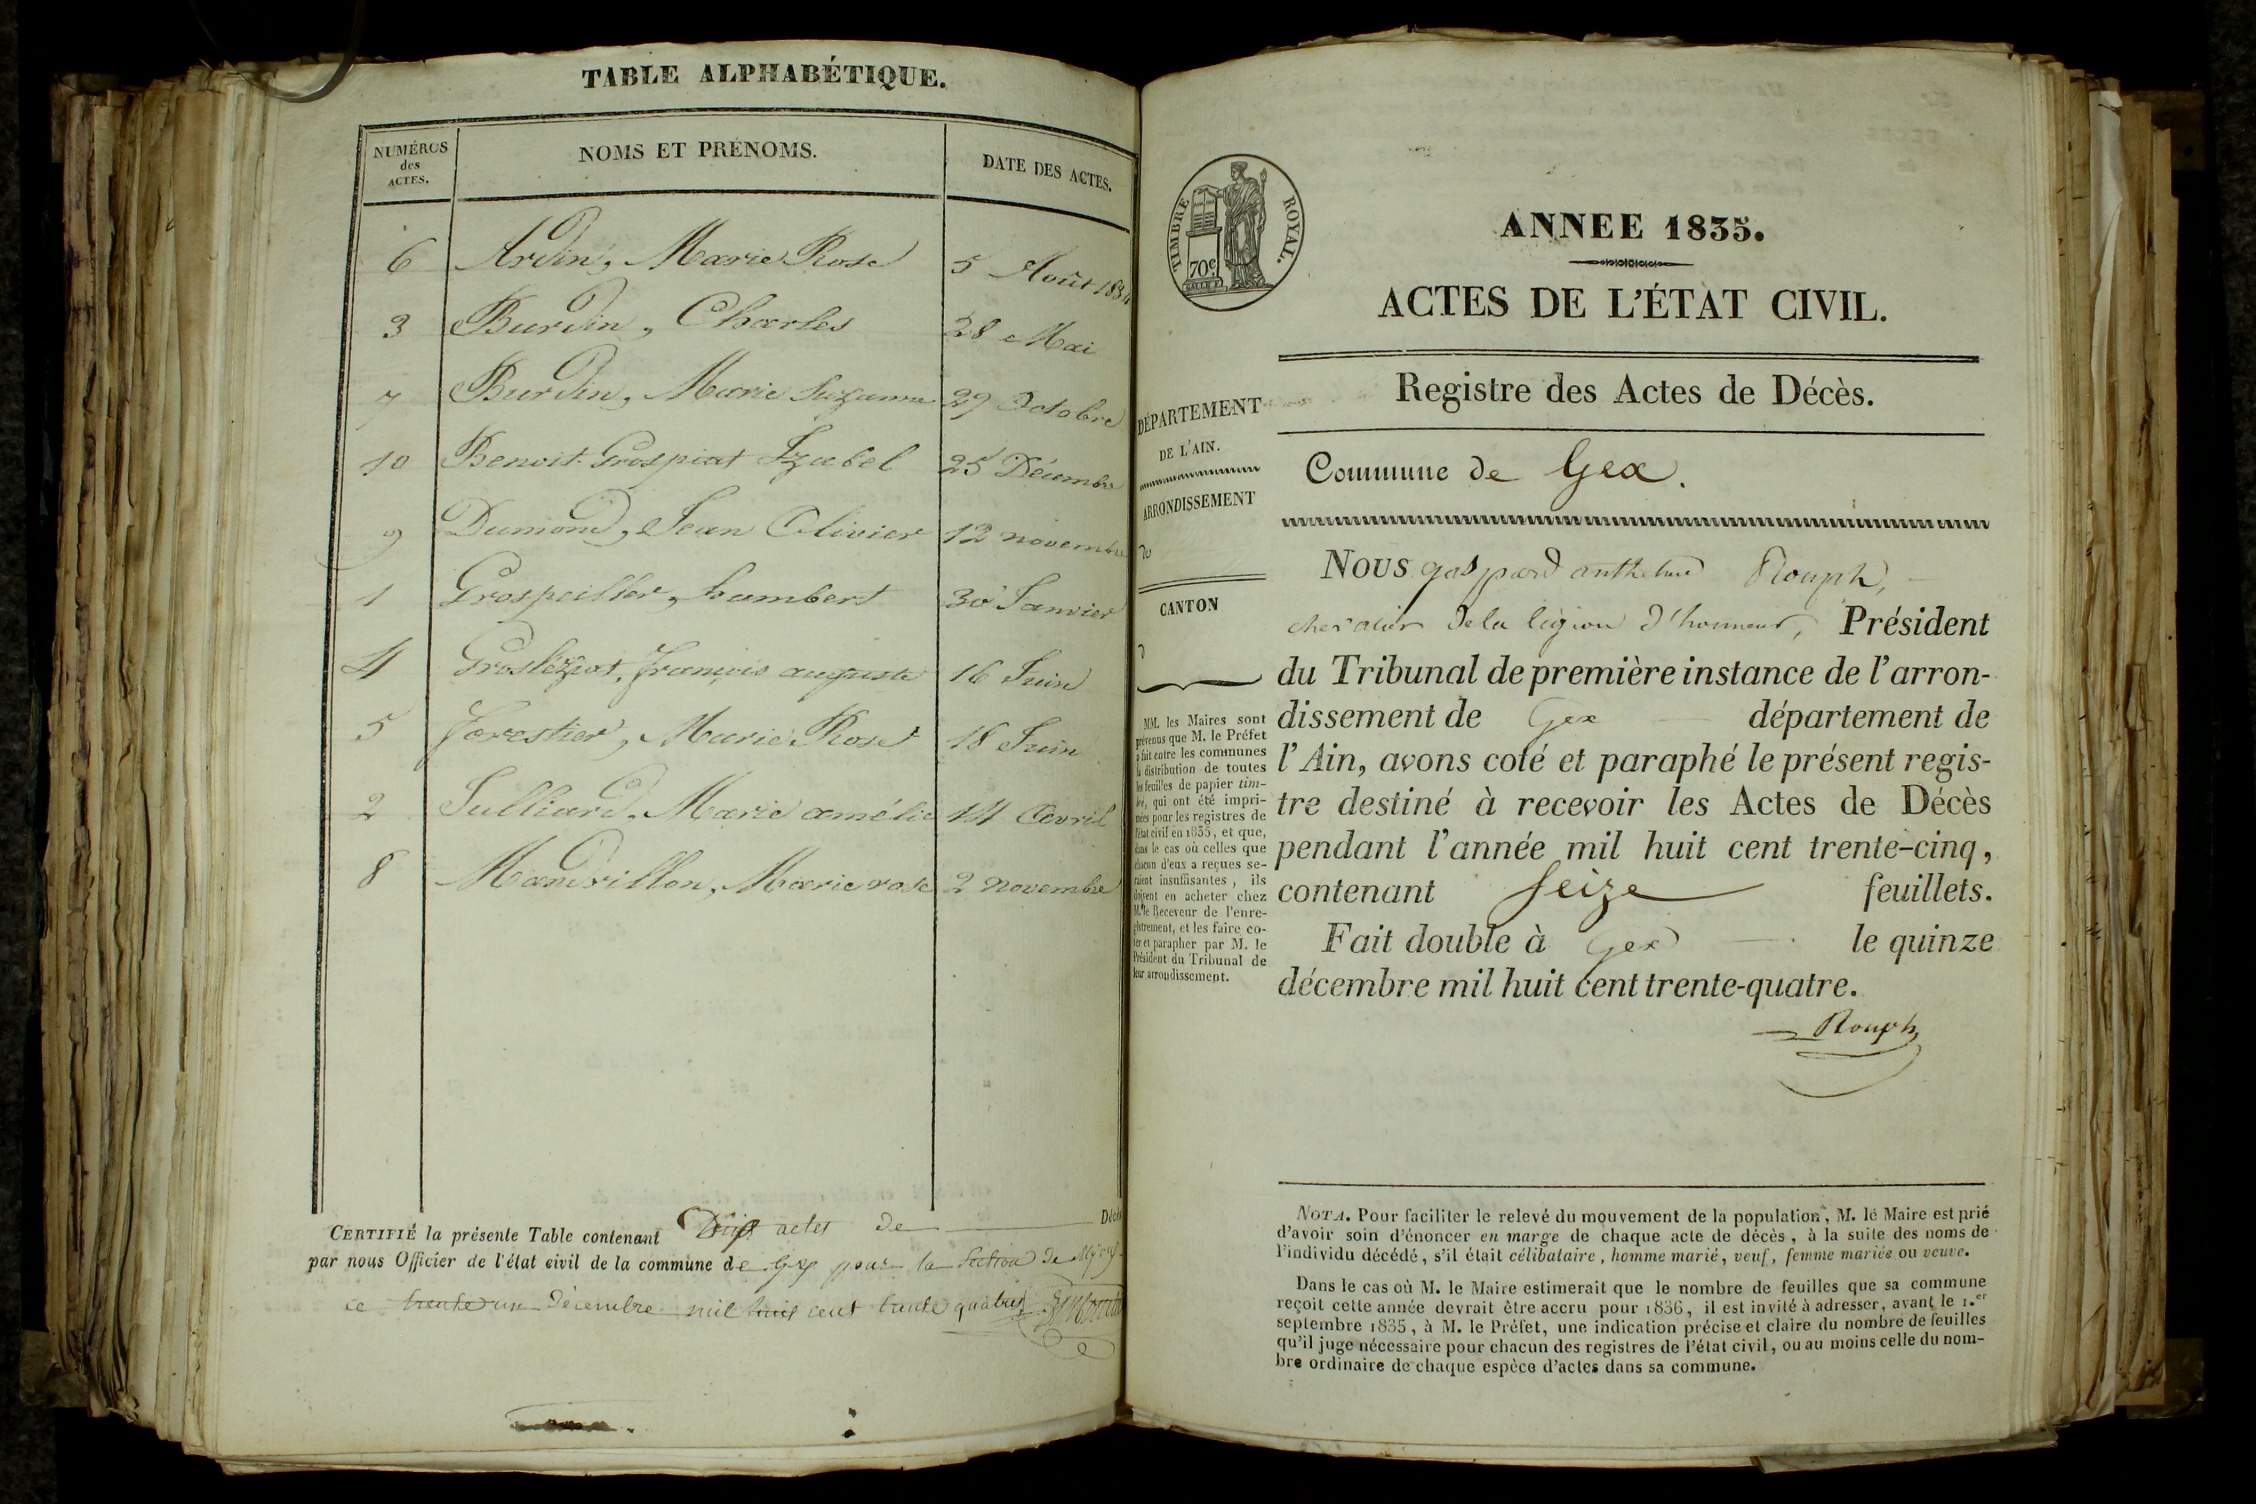 TABLE ALPHABÉTIQUE.
NUMÉROS des ACTES. NOMS ET PRÉNOMS. DATE DES ACTES.
6 Ardin, Marie Rose 5 Août 1834
3 Burdin, Charles 28 Mai
7 Burdin, Marie Suzanne 29 Octobre
10 Benoit-Grospiat Izabel 25 Décembre
9 Dumond, Jean Olivier 12 novembre
1 Grospeiller, humbert 30 Janvier
4 Grosléziat, françois auguste 16 Juin
5 forestier, Marie Rose 18 Juin
2 Julliard, Marie amélie 14 avril
8 Mandrillon, Marie rose 2 novembre
CERTIFIÉ la présente Table contenant Dix actes de Décès
par nous Officier de l'état civil de la commune de Gex pour la Section de Mijoux
ce trente un Décembre mil huit cent trente quatre
TIMBRE ROYAL.
70c
ANNEE 1835.
ACTES DE L'ÉTAT CIVIL.
Registre des Actes de Décès.
DÉPARTEMENT
DE L'AIN.
ARRONDISSEMENT
de
CANTON
d
MM. les Maires sont
prévenus que M. le Préfet
a fait entre les communes
la distribution de toutes
les feuilles de papier tim-
bré, qui ont été impri-
mées pour les registres de
l'état civil en 1835, et que,
dans le cas où celles que
chacun d'eux a reçues se-
raient insuffisantes, ils
doivent en acheter chez
M. le Receveur de l'enre-
gistrement, et les faire co-
ter et parapher par M. le
Président du Tribunal de
leur arrondissement.
Commune de Gex.
Nous gaspard anthelme Rouph,
chevalier de la légion d'honneur, Président
du Tribunal de première instance de l'arron-
dissement de Gex département de
l'Ain, avons coté et paraphé le présent regis-
tre destiné à recevoir les Actes de Décès
pendant l'année mil huit cent trente-cinq,
contenant Seize feuillets.
Fait double à Gex le quinze
décembre mil huit cent trente-quatre.
Rouph
NOTA. Pour faciliter le relevé du mouvement de la population, M. le Maire est prié
d'avoir soin d'énoncer en marge de chaque acte de décès, à la suite des noms de
l'individu décédé, s'il était célibataire, homme marié, veuf, femme mariée ou veuve.
Dans le cas où M. le Maire estimerait que le nombre de feuilles que sa commune
reçoit cette année devrait être accru pour 1836, il est invité à adresser, avant le 1.er
septembre 1835, à M. le Préfet, une indication précise et claire du nombre de feuilles
qu'il juge nécessaire pour chacun des registres de l'état civil, ou au moins celle du nom-
bre ordinaire de chaque espèce d'actes dans sa commune.